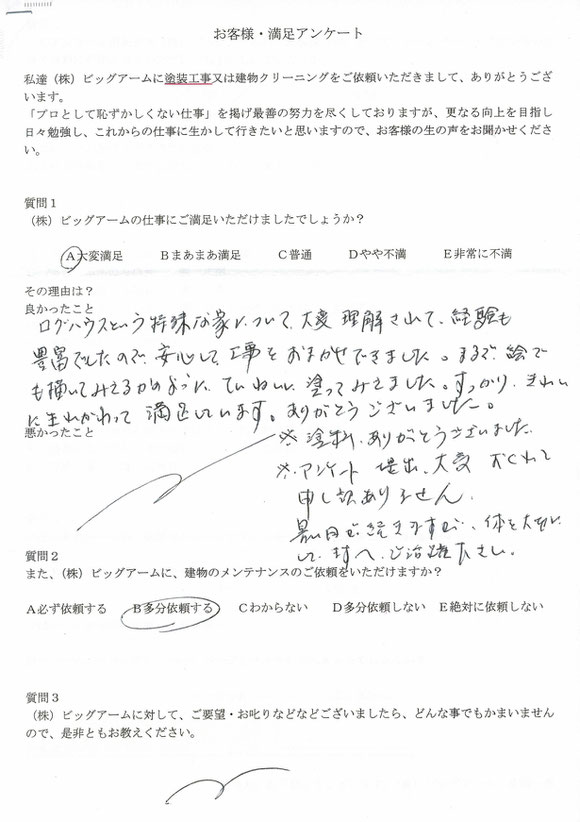 お客様・満足アンケート
私達（株）ビッグアームに塗装工事又は建物クリーニングをご依頼いただきまして、ありがとうござ
います。
「プロとして恥ずかしくない仕事」を掲げ最善の努力を尽くしておりますが、更なる向上を目指し
日々勉強し、これからの仕事に生かして行きたいと思いますので、お客様の生の声をお聞かせくださ
い。
質問１
（株）ビッグアームの仕事にご満足いただけましたでしょうか？
Ａ大変満足 Ｂまあまあ満足 Ｃ普通 Ｄやや不満 Ｅ非常に不満
その理由は？
良かったこと
ログハウスという特殊な家について、大変理解されて、経験も
豊富でしたので、安心して工事をおまかせできました。まるで、絵で
も描いてみえるかのように、ていねいに塗ってみえました。すっかり、きれい
に生れかわって満足しています。ありがとうございました。
悪かったこと
※塗料、ありがとうございました
※アンケート 提出、大変 おくれて
申し訳ありません。
暑い日が続きますが、体を大切に
して、ご活躍下さい。
質問２
また、（株）ビッグアームに、建物のメンテナンスのご依頼をいただけますか？
Ａ必ず依頼する Ｂ多分依頼する Ｃわからない Ｄ多分依頼しない Ｅ絶対に依頼しない
質問３
（株）ビッグアームに対して、ご要望・お叱りなどなどございましたら、どんな事でもかまいません
ので、是非ともお教えください。